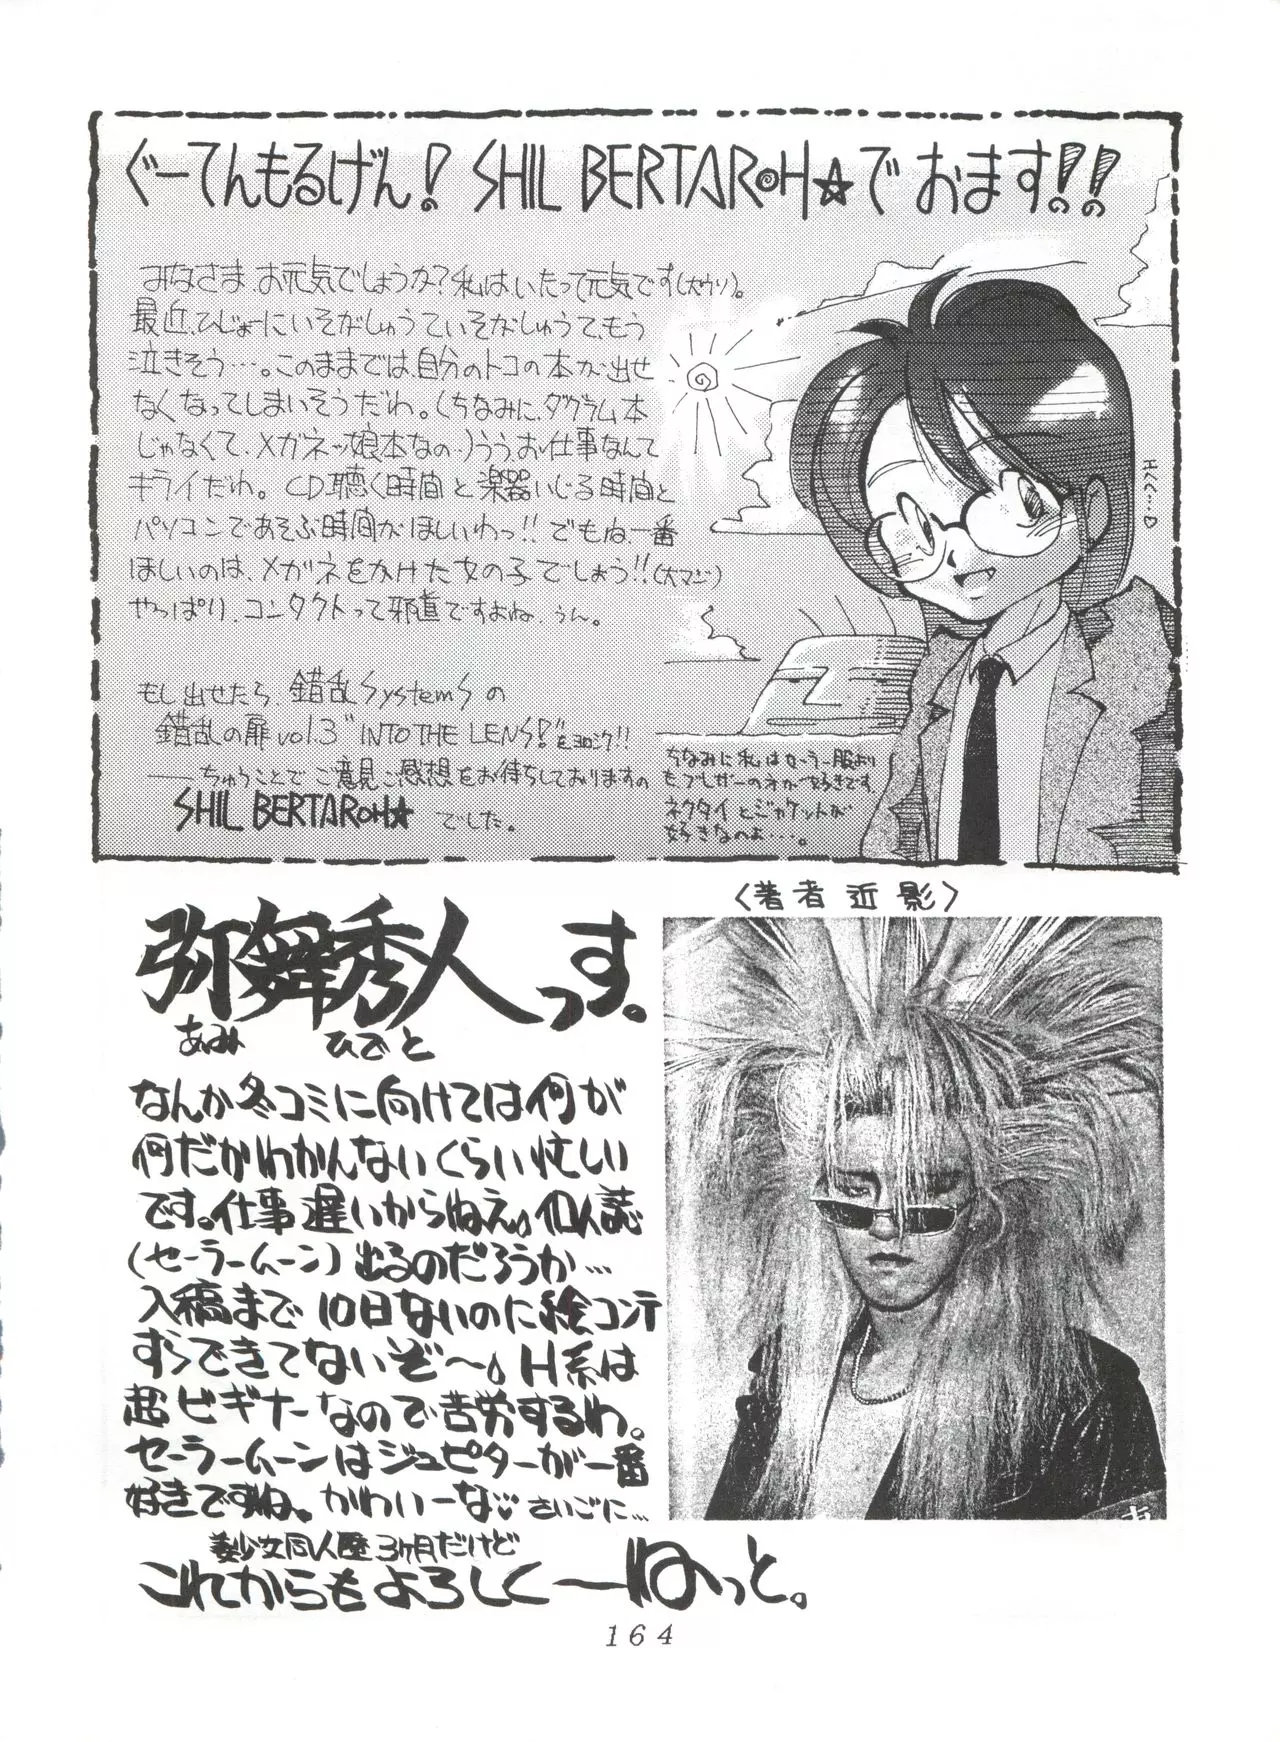 ぐーてんもるげん! SHIL BERTAROH☆でおます!!
みなさま、お元気でしょうか?私は、いたって元気です(大ウソ)。
最近、ひじょーにいそがしゅうていそがしゅうて、もう
泣きそう…。このままでは、自分のトコの本が、出せ
なくなってしまいそうだわ。(ちなみに、ダグラム本
じゃなくて、メガネッ娘本なの…)ううお仕事なんて
キライだわ。CD聴く時間と楽器いじる時間と
パソコンであそぶ時間がほしいわっ!!でもね、一番
ほしいのは、メガネをかけた女の子でしょう!!(大マジ)
やっぱり、コンタクトって邪道ですよね、うん。
もし出せたら、錯乱SystemSの
錯乱の扉vol.3"INTO THE LENS!"をヨロシク!!
――ちゅうことでご意見ご感想をお待ちしておりますの
SHIL BERTAROH☆でした。
HくC…♡
ちなみに私はセーラー服より
も、ブレザーの方が好きです。
ネクタイとジャケットが
好きなのよ…。
〈著者近影〉
弥舞秀人っす。
あみ ひでと
なんか冬コミに向けては何が
何だかわかんないくらい忙しい
です。仕事遅いからねえ。個人誌
(セーラームーン)出るのだろうか…
入稿まで10日ないのに絵コンテ
すらできてないぞ〜。H系は
超ビギナーなので苦労するわ。
セーラームーンはジュピターが一番
好きですね。かわいーな♡さいごに…
美少女同人歴3ヶ月だけど
これからもよろしく――ねっと。
164